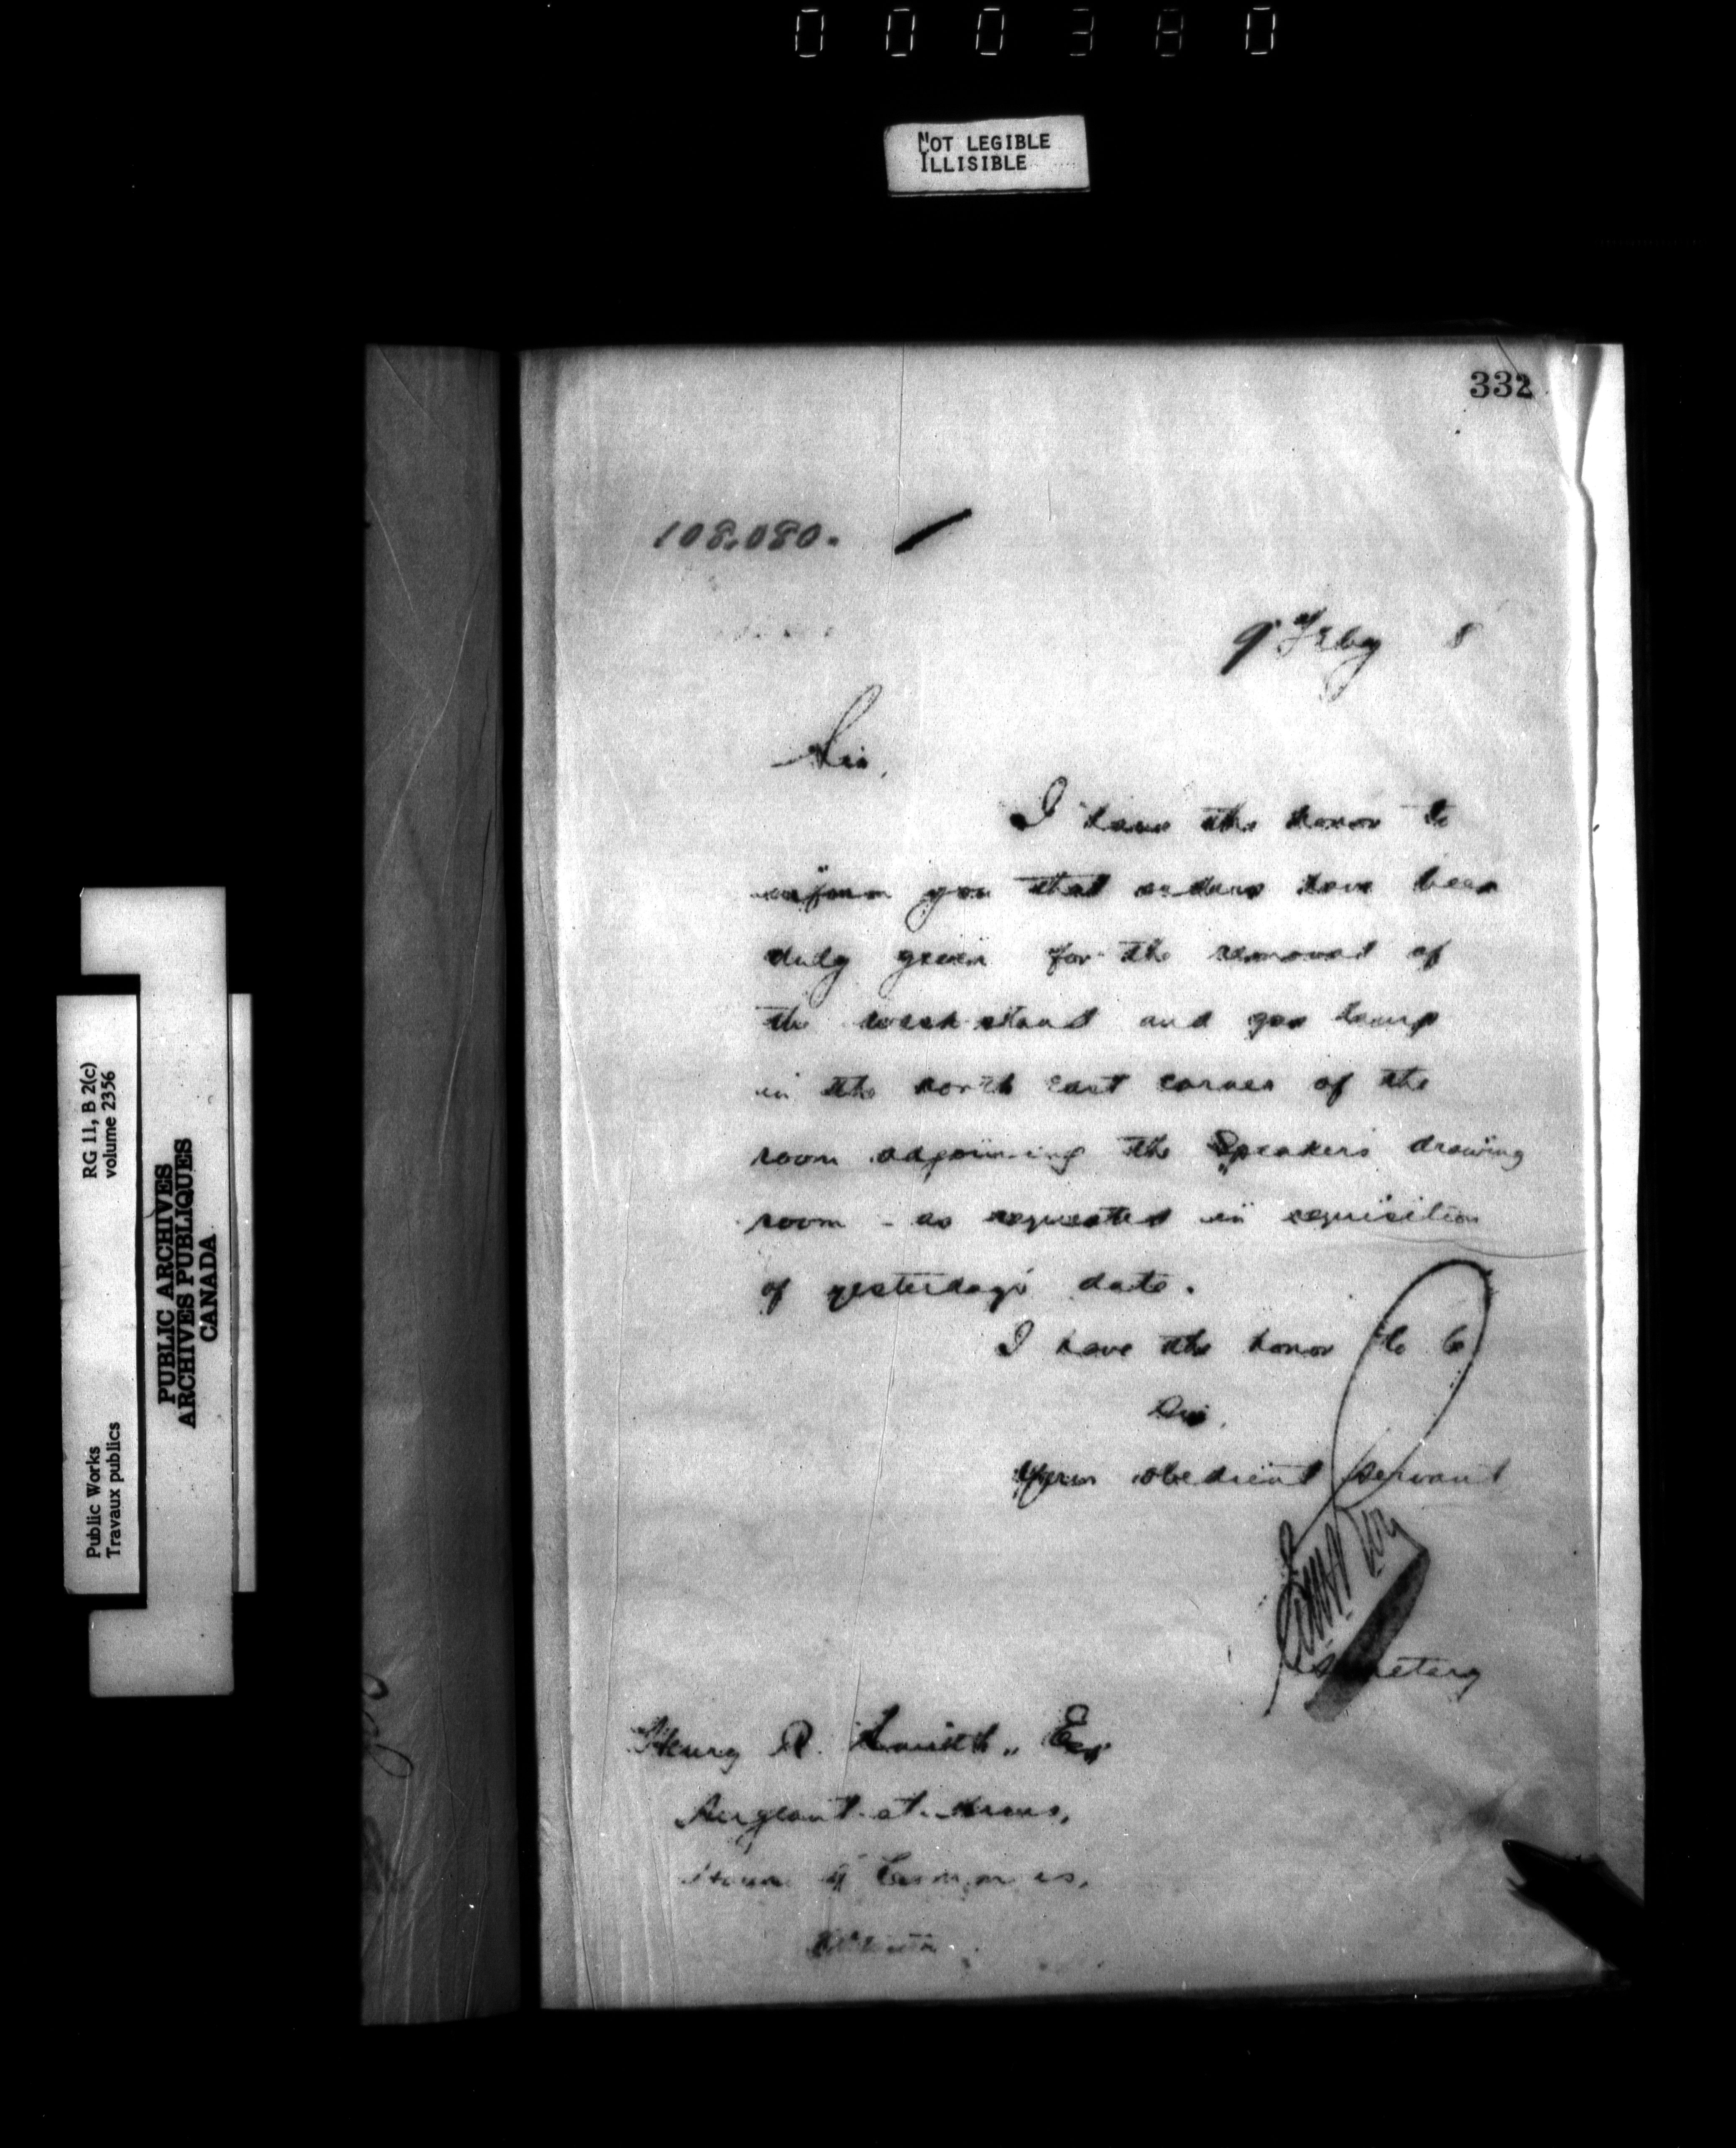 000380
NOT LEGIBLE
ILLISIBLE
332
108.080.
9 Feby 8
Sir,
I have the honor to
inform you that orders have been
duly given for the removal of
the wash stand and gas lamp
in the north east corner of the
room adjoining the Speaker's drawing
room - as requested in requisition
of yesterday's date.
I have the honor to be
Sir,
Your obedient servant
Secretary
Henry R. Smith, Esq
Sergeant-at-Arms,
House of Commons,
Ottawa
RG 11, B 2(c)
volume 2356
Public Works
Travaux publics
PUBLIC ARCHIVES
ARCHIVES PUBLIQUES
CANADA